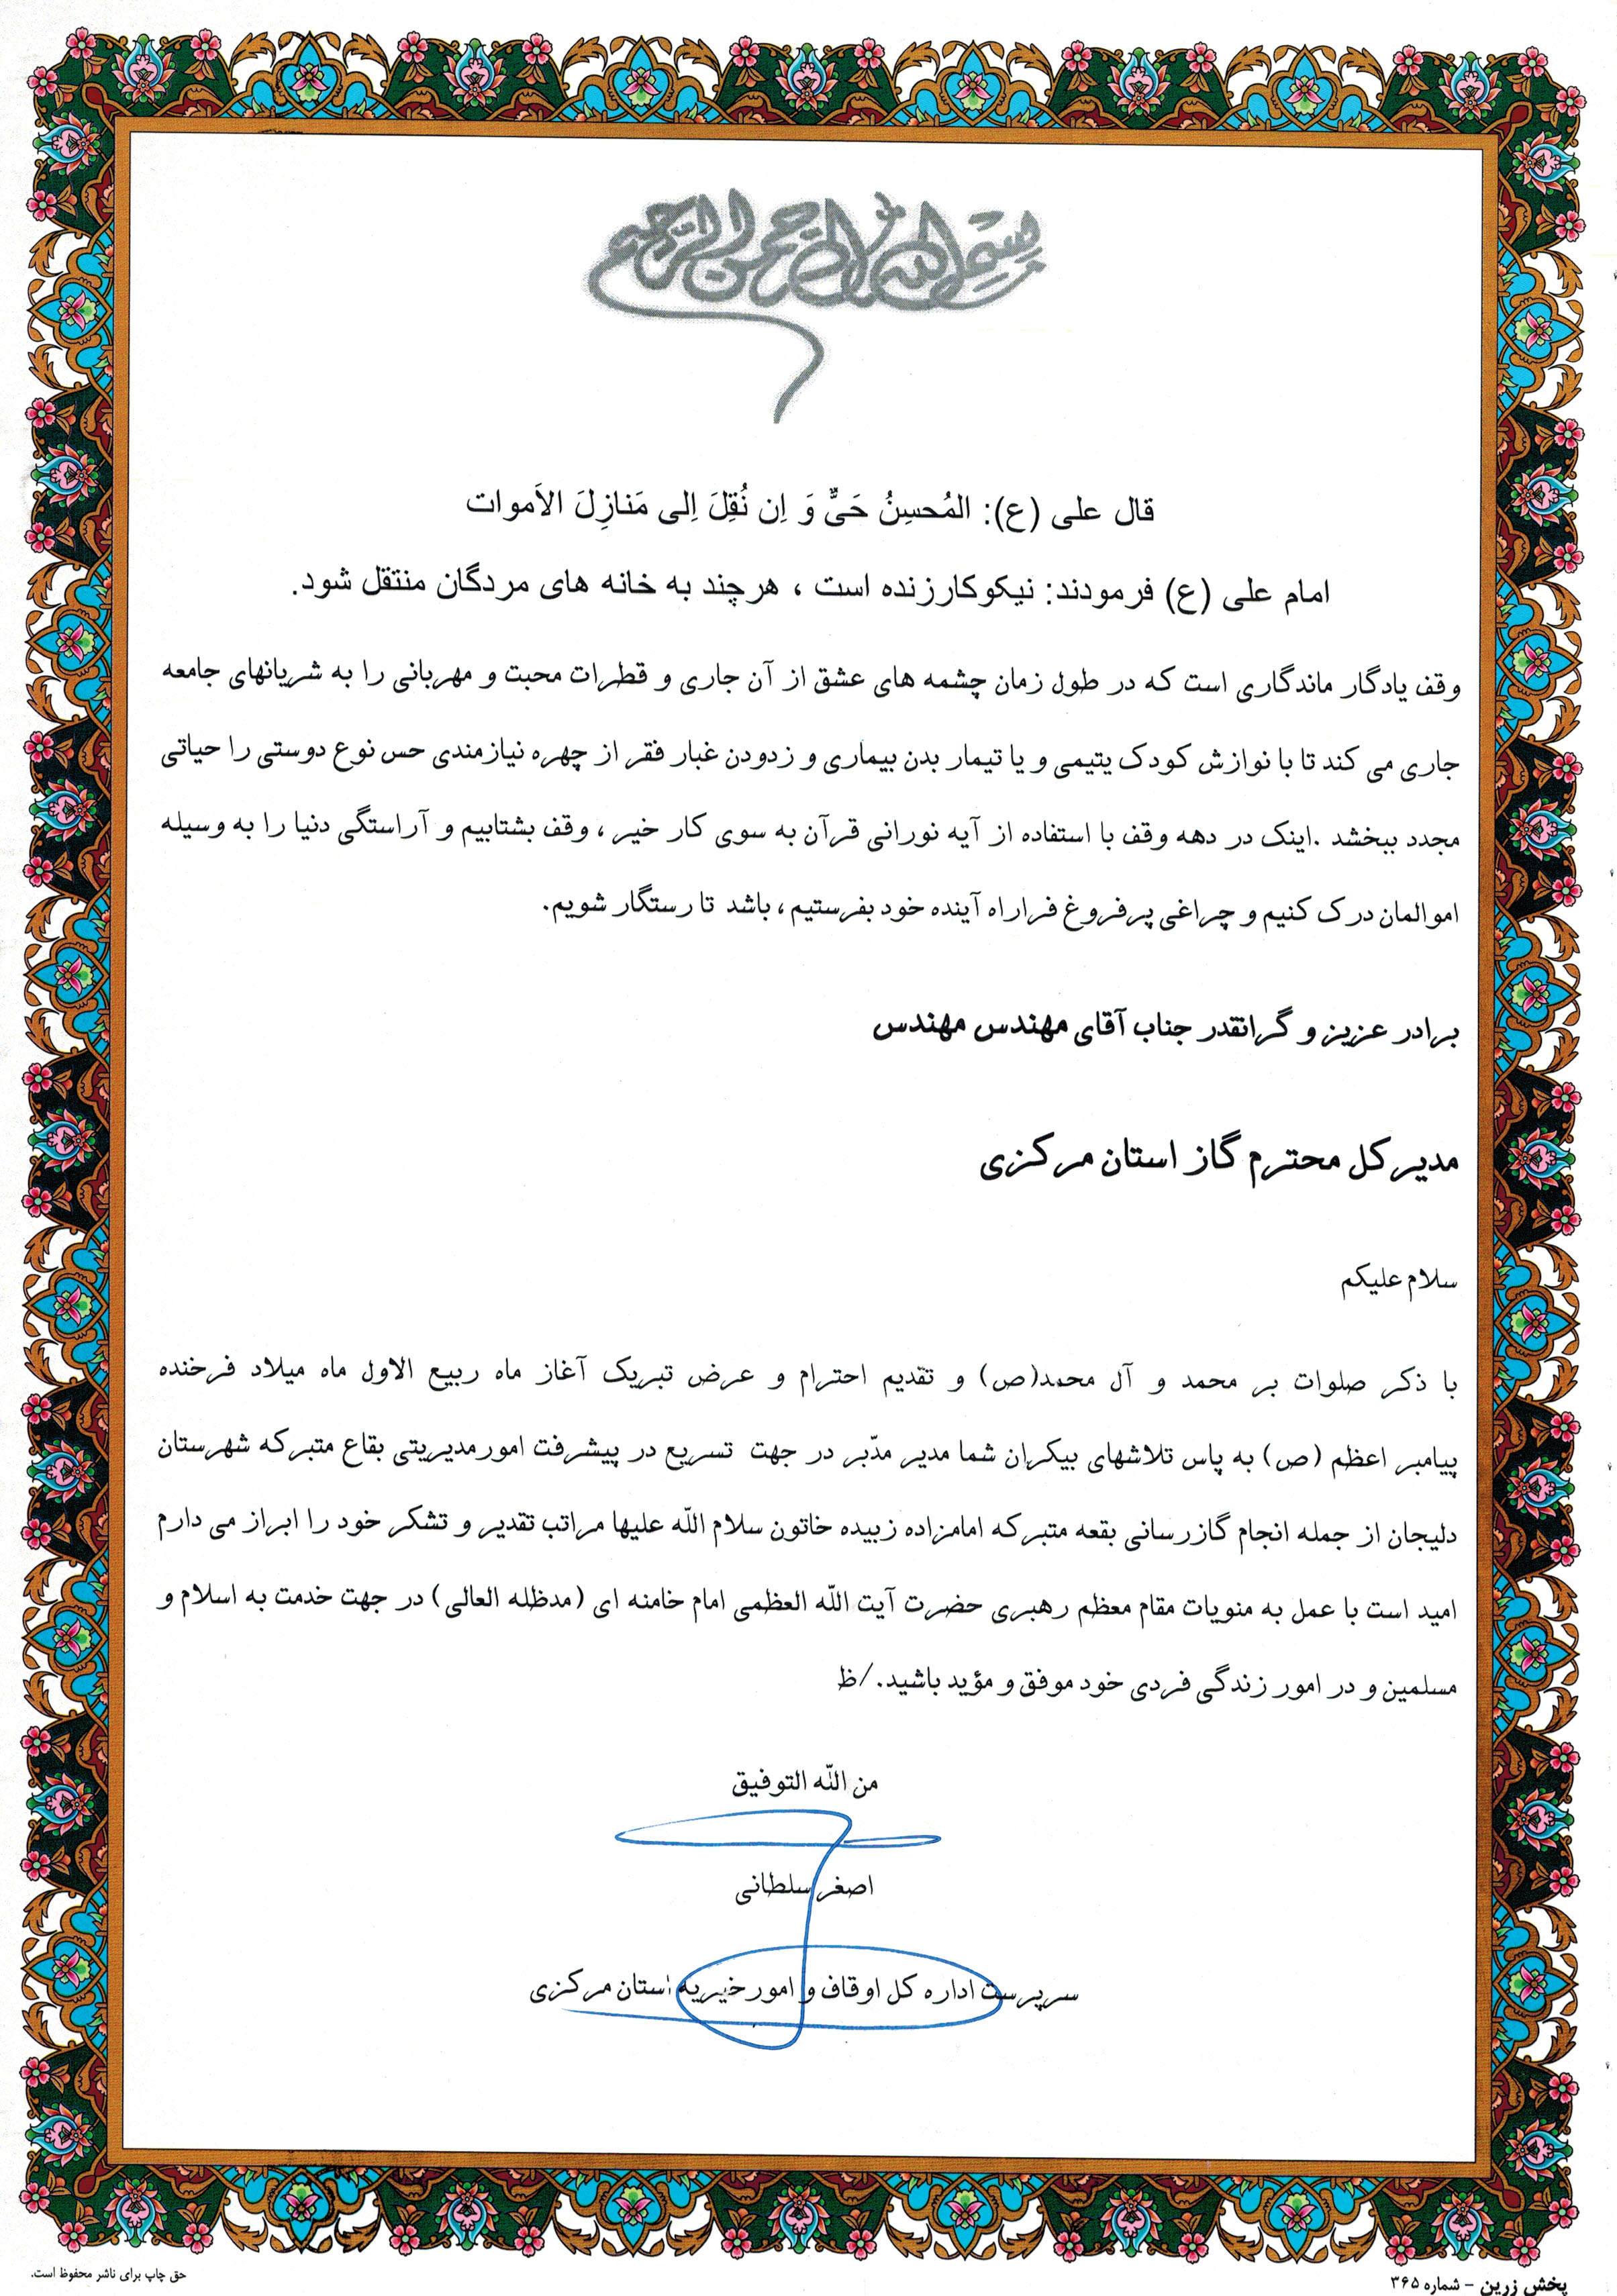 بسم الله الرحمن الرحیم
قال علی (ع): المُحسِنُ حَیٌّ وَ اِن نُقِلَ اِلی مَنازِلَ الاَموات
امام علی (ع) فرمودند: نیکوکارزنده است ، هرچند به خانه های مردگان منتقل شود.
وقف یادگار ماندگاری است که در طول زمان چشمه های عشق از آن جاری و قطرات محبت و مهربانی را به شریانهای جامعه
جاری می کند تا با نوازش کودک یتیمی و یا تیمار بدن بیماری و زدودن غبار فقر از چهره نیازمندی حس نوع دوستی را حیاتی
مجدد ببخشد .اینک در دهه وقف با استفاده از آیه نورانی قرآن به سوی کار خیر ، وقف بشتابیم و آراستگی دنیا را به وسیله
اموالمان درک کنیم و چراغی پرفروغ فراراه آینده خود بفرستیم ، باشد تا رستگار شویم.
برادر عزیز و گرانقدر جناب آقای مهندس مهندس
مدیرکل محترم گاز استان مرکزی
سلام علیکم
با ذکر صلوات بر محمد و آل محمد(ص) و تقدیم احترام و عرض تبریک آغاز ماه ربیع الاول ماه میلاد فرخنده
پیامبر اعظم (ص) به پاس تلاشهای بیکران شما مدیر مدّبر در جهت تسریع در پیشرفت امورمدیریتی بقاع متبرکه شهرستان
دلیجان از جمله انجام گازرسانی بقعه متبرکه امامزاده زبیده خاتون سلام اللّه علیها مراتب تقدیر و تشکر خود را ابراز می دارم
امید است با عمل به منویات مقام معظم رهبری حضرت آیت اللّه العظمی امام خامنه ای (مدظله العالی) در جهت خدمت به اسلام و
مسلمین و در امور زندگی فردی خود موفق و مؤید باشید. /ظ
من اللّه التوفیق
اصغر سلطانی
سرپرست اداره کل اوقاف و امور خیریه استان مرکزی
پخش زرین - شماره ۳۶۵
حق چاپ برای ناشر محفوظ است.